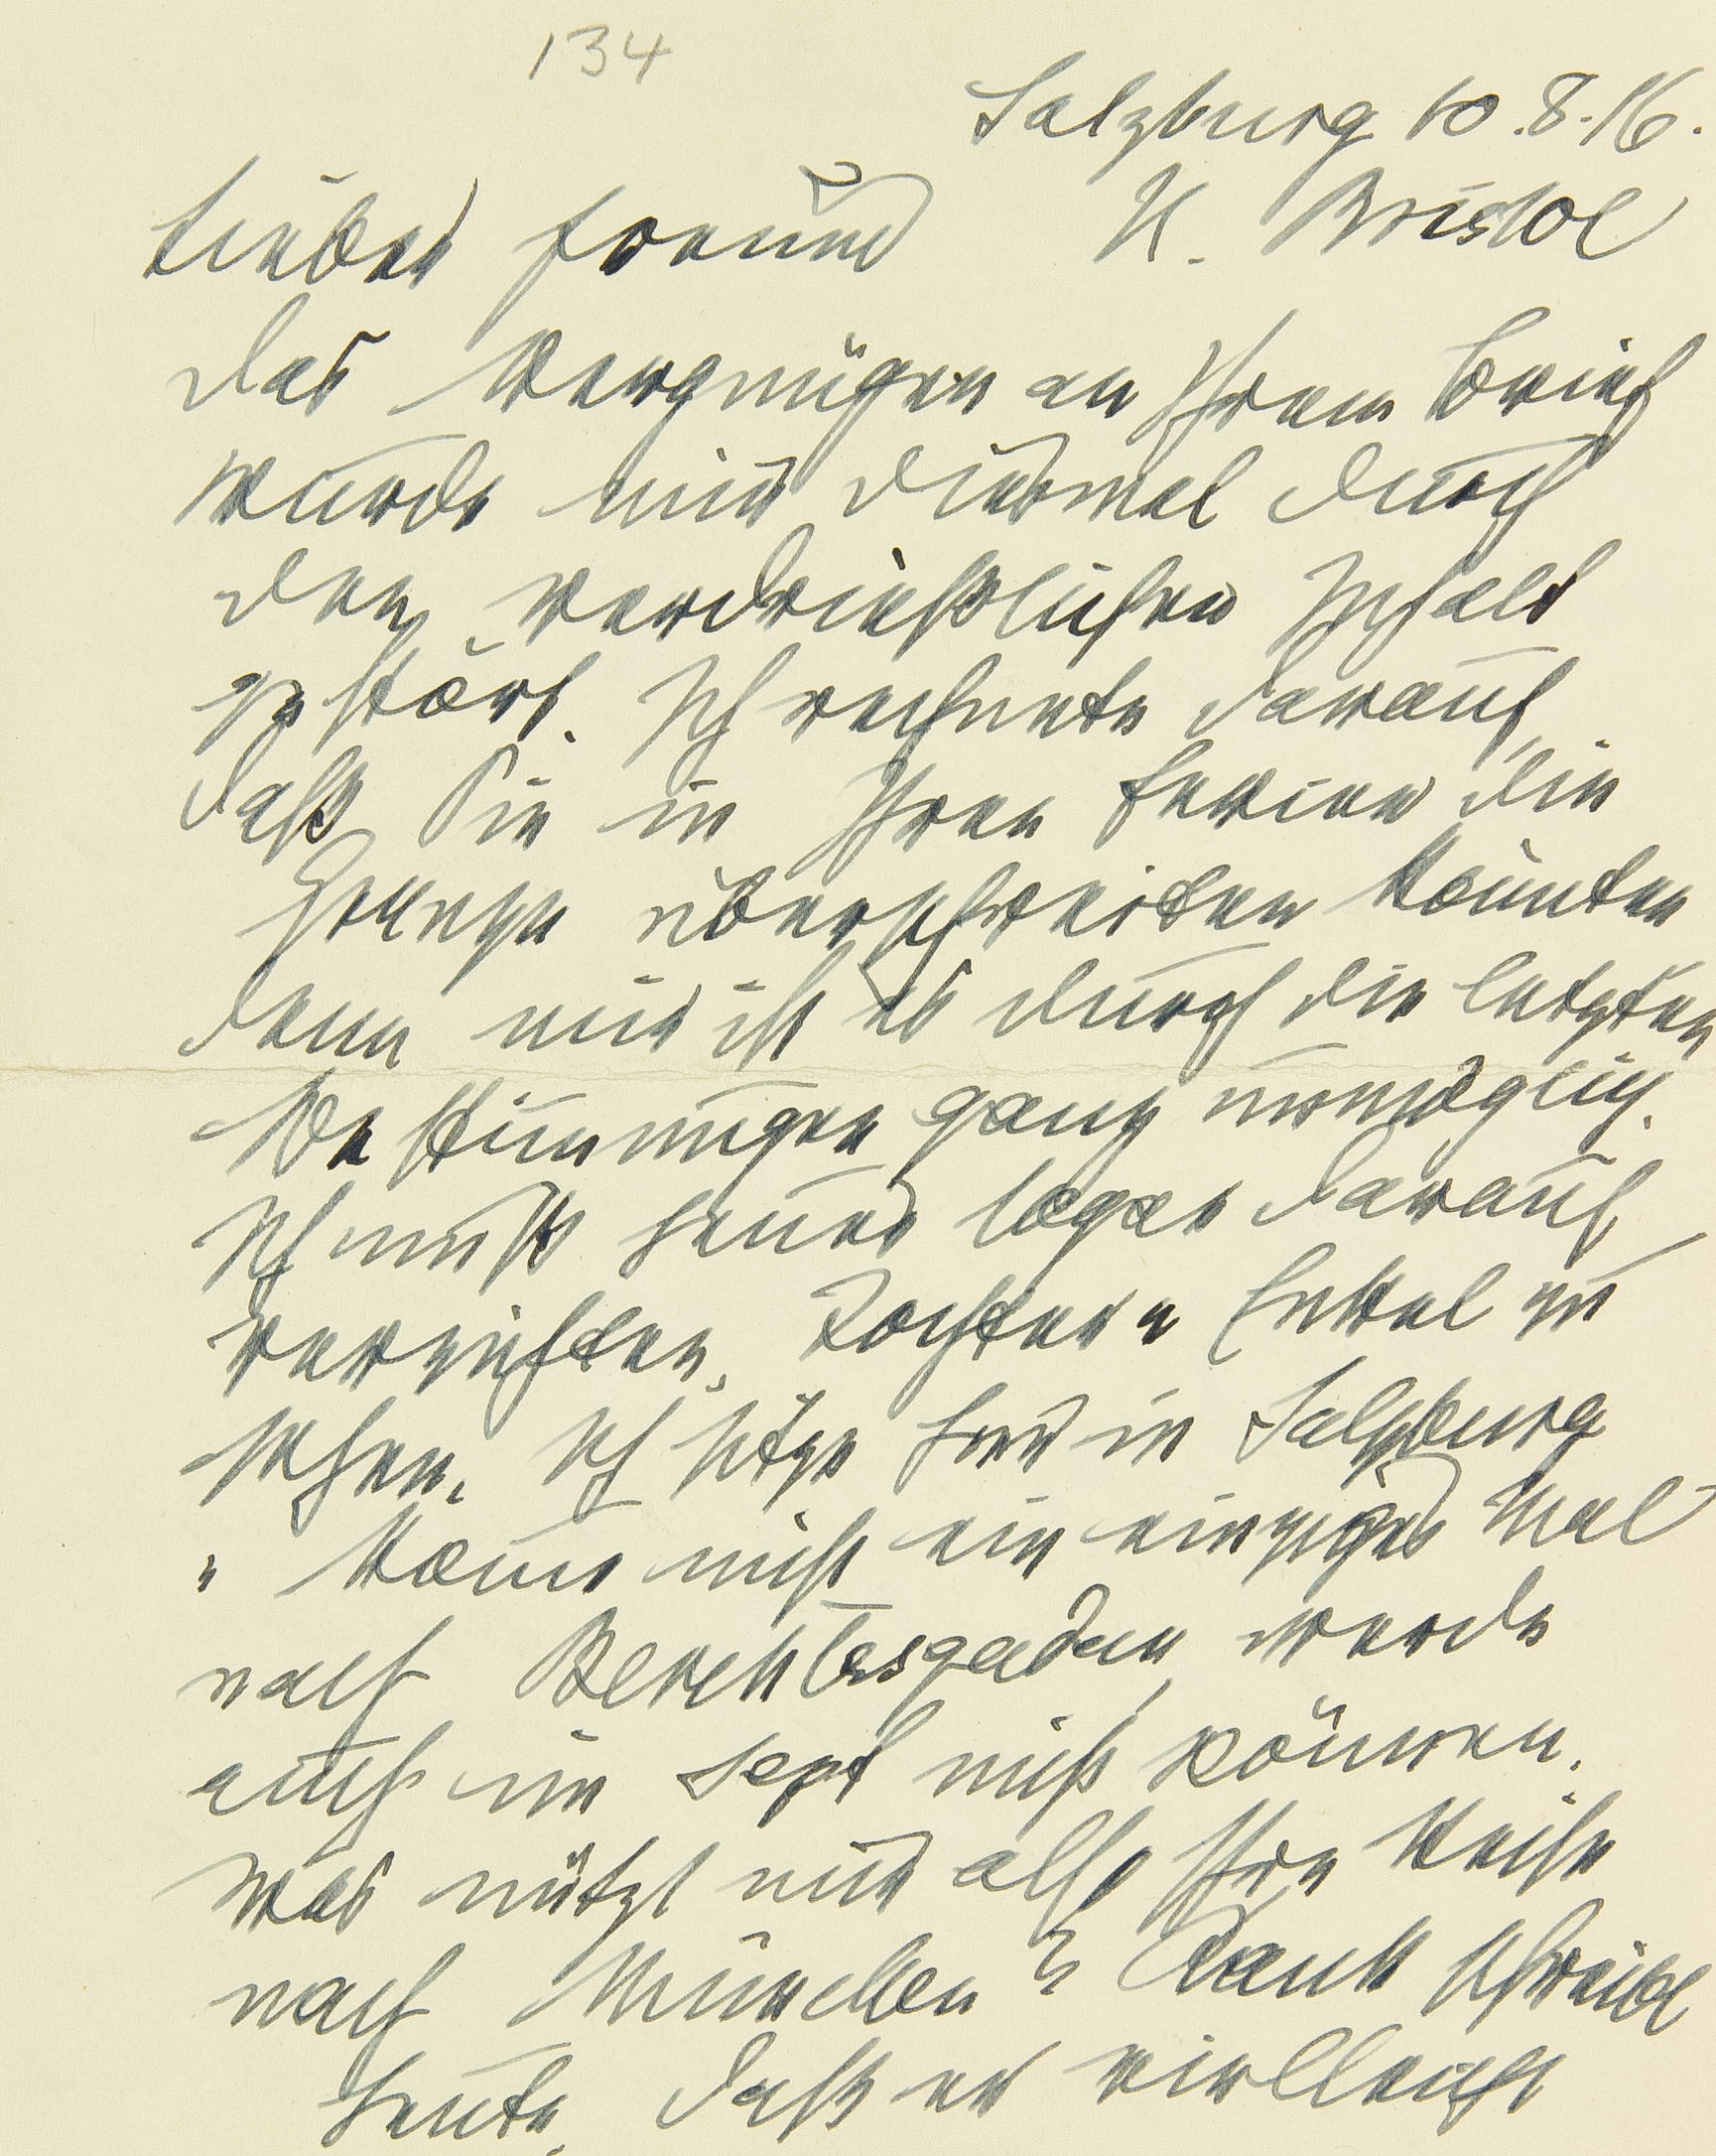 134
Salzburg 10.8.16.
Lieber Freund H. Bristol
Das Vergnügen an Ihrem Brief
wurde mir diesmal durch
den verdrießlichen Inhalt
gestört. Ich rechnete darauf,
daß Sie in Ihren Ferien die
Grenze überschreiten könnten
denn mir ist es durch die letzten
Bestimmungen ganz unmöglich.
Ich muß heuer sogar darauf
verzichten, Tochter u Enkel zu
sehen. Ich sitze hier in Salzburg
u kann nicht ein einziges Mal
nach Berchtesgaden, werde
auch im Sept nicht können.
Was nützt mir also Ihre Reise
nach München? Rank schreibt
heute, daß er vielleicht